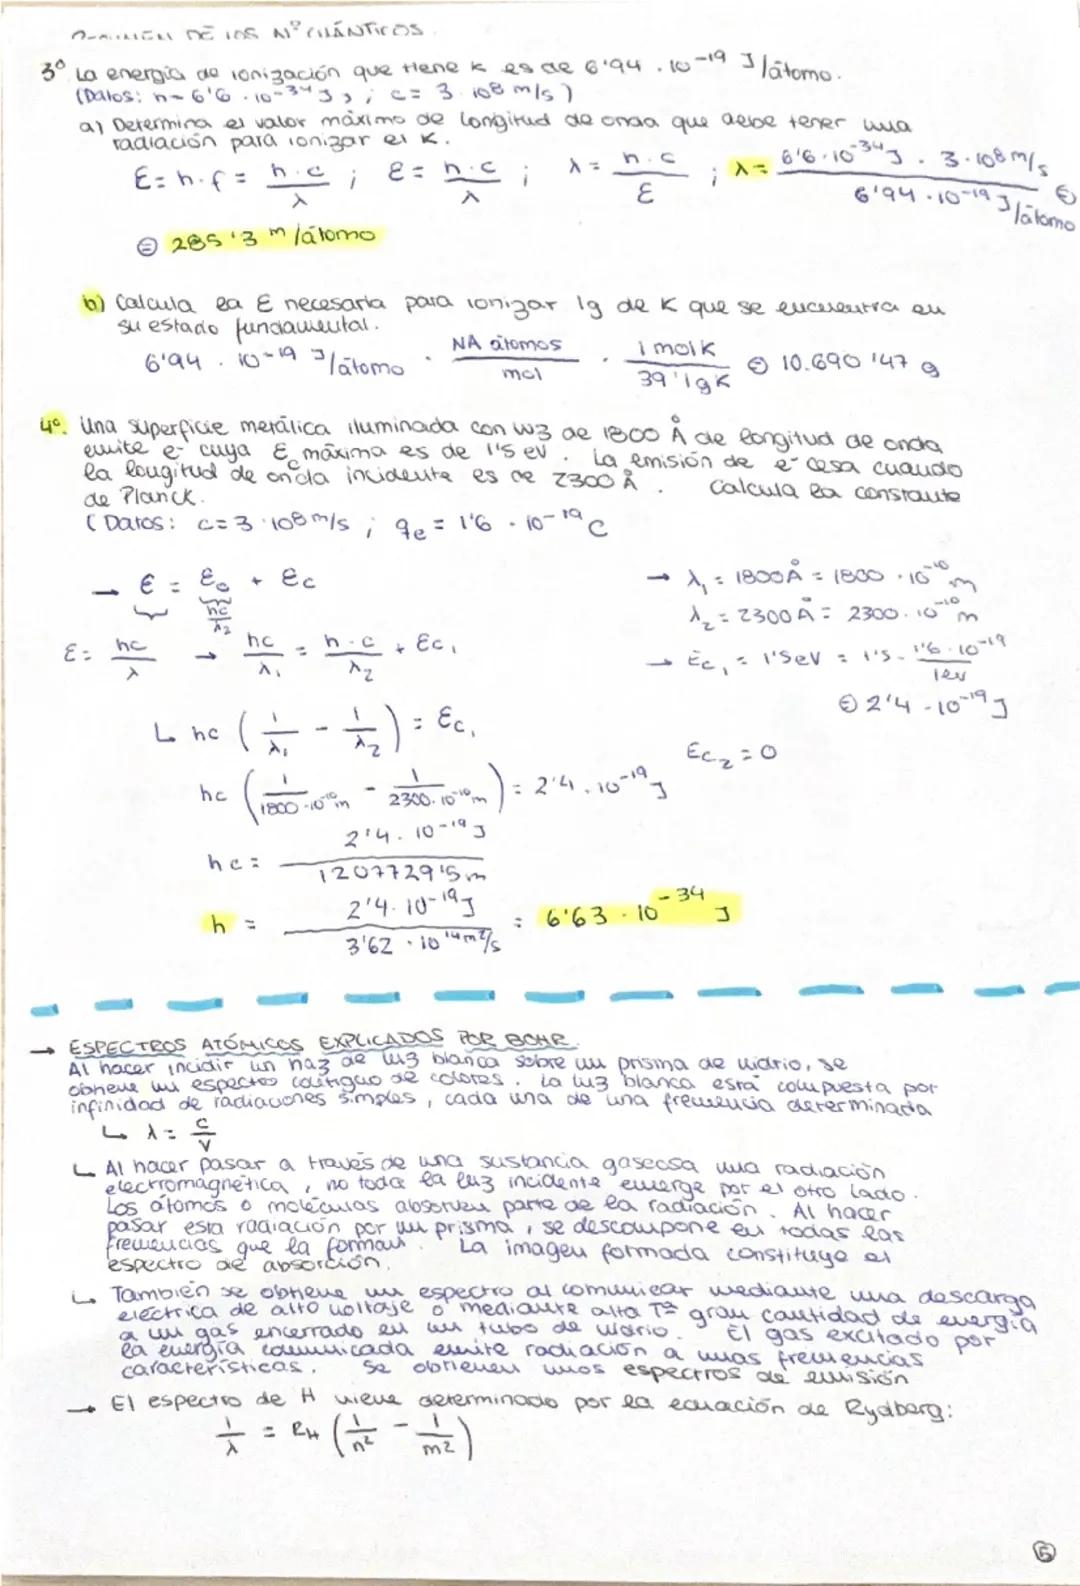 DE LOS Nº CUÁNTICOS.
3º La energía de ionización que tiene K es de 6'94 . 10⁻¹⁹ J/átomo.
(Datos: h = 6'6 . 10⁻³⁴ J s ; c = 3 . 10⁸ m/s)
a) Determina el valor máximo de longitud de onda que debe tener una
radiación para ionizar el K.
E = h . f = h . c / λ ; E = h . c / λ ; λ = h . c / E ; λ = 6'6 . 10⁻³⁴ J . 3 . 10⁸ m/s / 6'94 . 10⁻¹⁹ J/átomo =
= 285'3 m/átomo
b) Calcula la E necesaria para ionizar 1g de K que se encuentra en
su estado fundamental.
6'94 . 10⁻¹⁹ J/átomo . NA átomos / mol . 1 mol K / 39'1g K = 10.690'47 g
4º. Una superficie metálica iluminada con luz de 1800 Å de longitud de onda
emite e⁻ cuya Ec máxima es de 1'5 eV. La emisión de e⁻ cesa cuando
la longitud de onda incidente es de 2300 Å. Calcula la constante
de Planck.
(Datos: c = 3 . 10⁸ m/s ; qe = 1'6 . 10⁻¹⁹ C
→ E = E₀ + Ec
hc / λ₂
→ λ₁ = 1800 Å = 1800 . 10⁻¹⁰ m
λ₂ = 2300 Å = 2300 . 10⁻¹⁰ m
E = hc / λ → hc / λ₁ = h . c / λ₂ + Ec₁
→ Ec₁ = 1'5 eV = 1'5 . 1'6 . 10⁻¹⁹ / 1eV
= 2'4 . 10⁻¹⁹ J
↳ hc ( 1/λ₁ - 1/λ₂ ) = Ec₁
Ec₂ = 0
hc ( 1 / 1800 . 10⁻¹⁰ m - 1 / 2300 . 10⁻¹⁰ m ) = 2'4 . 10⁻¹⁹ J
hc = 2'4 . 10⁻¹⁹ J / 1207729'5 m
h = 2'4 . 10⁻¹⁹ J / 3'62 . 10¹⁴ m²/s = 6'63 . 10⁻³⁴ J
→ ESPECTROS ATÓMICOS EXPLICADOS POR BOHR.
Al hacer incidir un haz de luz blanca sobre un prisma de vidrio, se
obtiene un espectro contiguo de colores. La luz blanca está compuesta por
infinidad de radiaciones simples, cada una de una frecuencia determinada
↳ λ = c / ν
↳ Al hacer pasar a través de una sustancia gaseosa una radiación
electromagnética, no toda la luz incidente emerge por el otro lado.
Los átomos o moléculas absorven parte de la radiación. Al hacer
pasar esta radiación por un prisma, se descompone en todas las
frecuencias que la forman. La imagen formada constituye el
espectro de absorción.
↳ También se obtiene un espectro al comunicar mediante una descarga
eléctrica de alto voltaje o mediante alta Tª gran cantidad de energía
a un gas encerrado en un tubo de vidrio. El gas excitado por
la energía comunicada emite radiación a unas frecuencias
características. Se obtienen unos espectros de emisión
→ El espectro de H viene determinado por la ecuación de Rydberg:
1/λ = RH ( 1/n² - 1/m² )
5